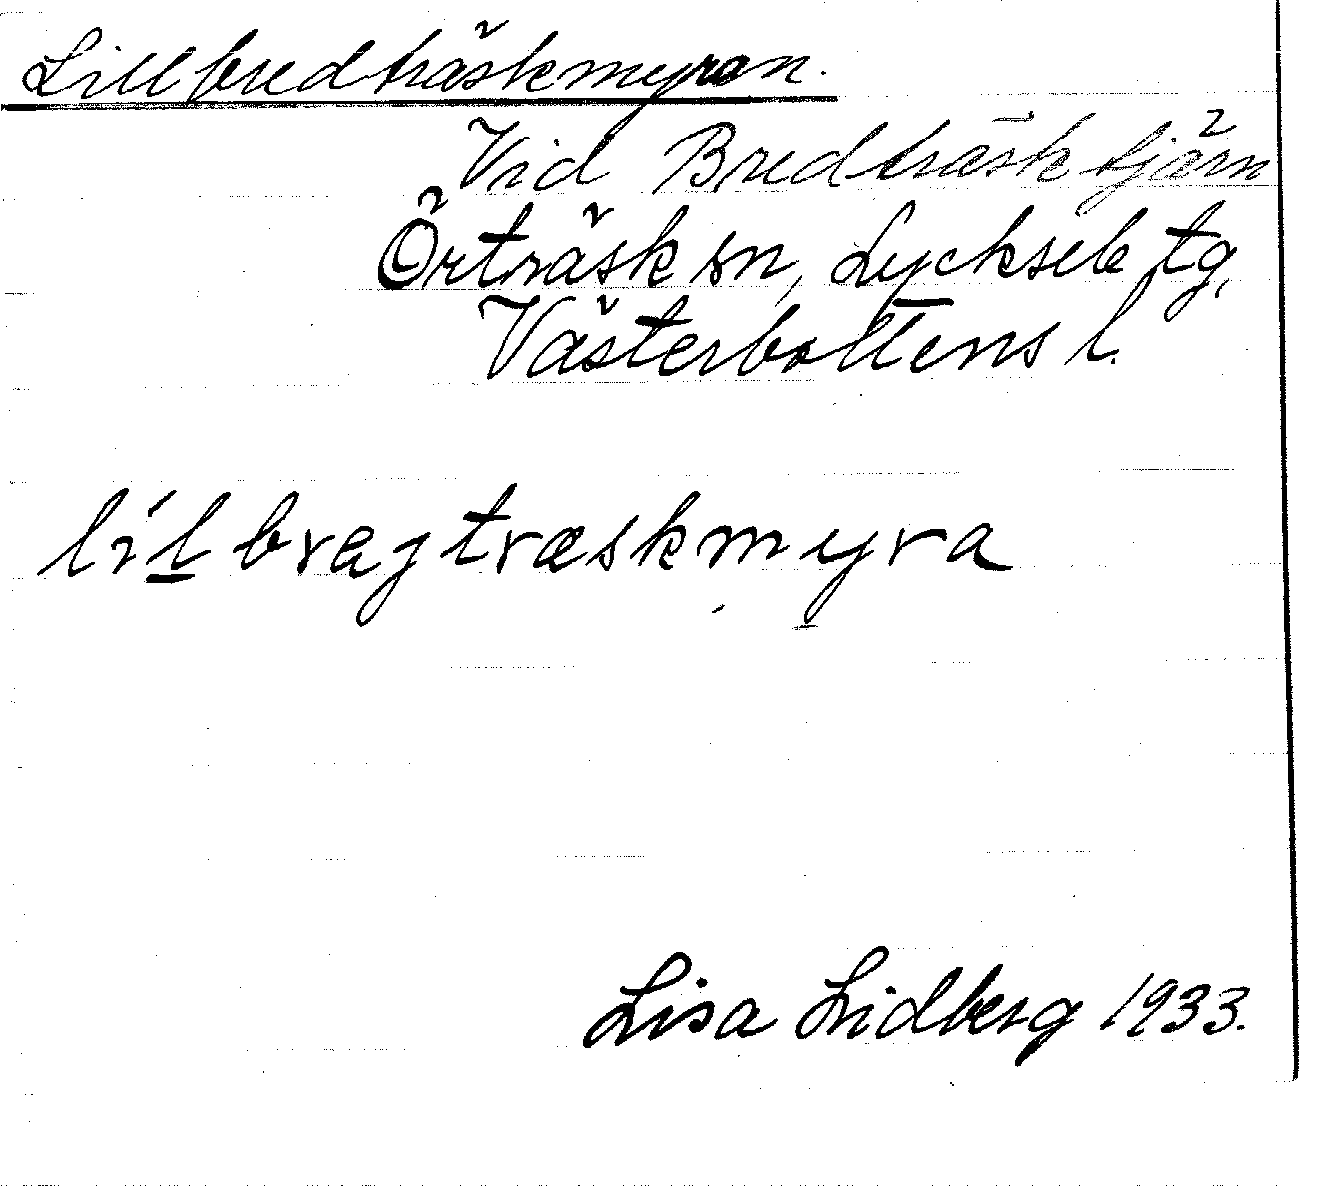 Lillbredträskmyran.
Vid Bredträsktjärn
Örträsk sn, Lycksele tg,
Västerbottens l.
lil bragtræskmyra
Lisa Lidberg 1933.